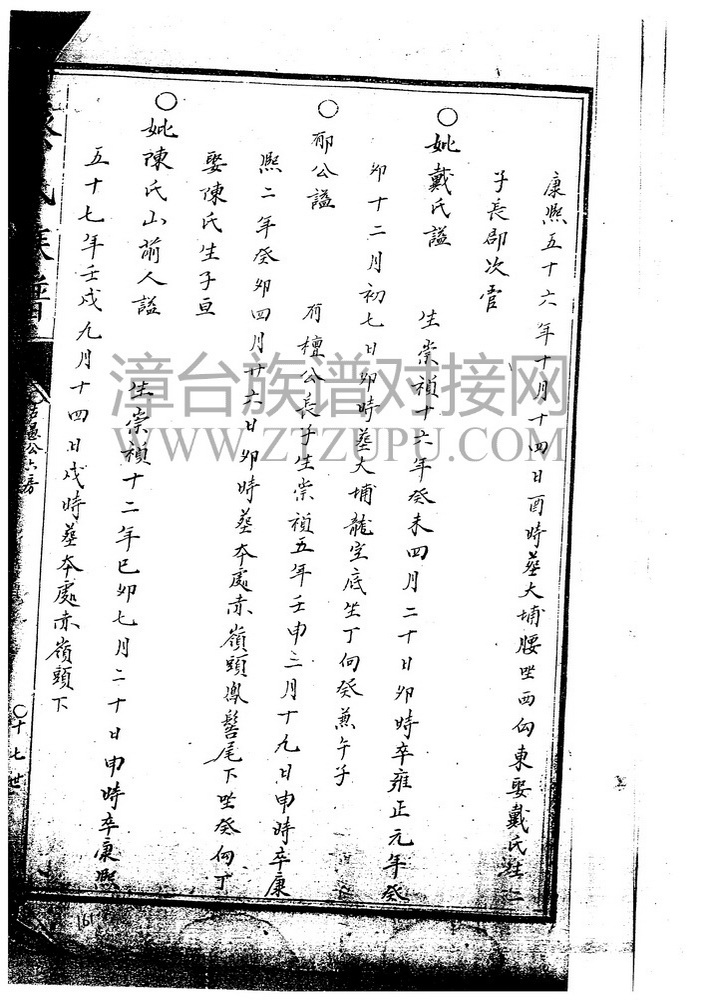 康熙五十六年十月十四日酉時葬大埔腰坐西向東娶戴氏生二
子長郡次管
○妣戴氏諡 生崇禎十六年癸未四月二十日卯時卒雍正元年癸
卯十二月初七日卯時葬大埔龍空底坐丁向癸兼午子
○郁公諡 有檀公長子生崇禎五年壬申三月十九日申時卒康
熙二年癸卯四月廿六日卯時葬本處赤嶺頭鳳髻尾下坐癸向丁
娶陳氏生子亘
○妣陳氏山前人諡 生崇禎十二年己卯七月二十日申時卒康熙
五十七年壬戌九月十四日戌時葬本處赤嶺頭下
氏族譜
愚公六房
○十七世
161
漳台族谱对接网
WWW.ZTZUPU.COM